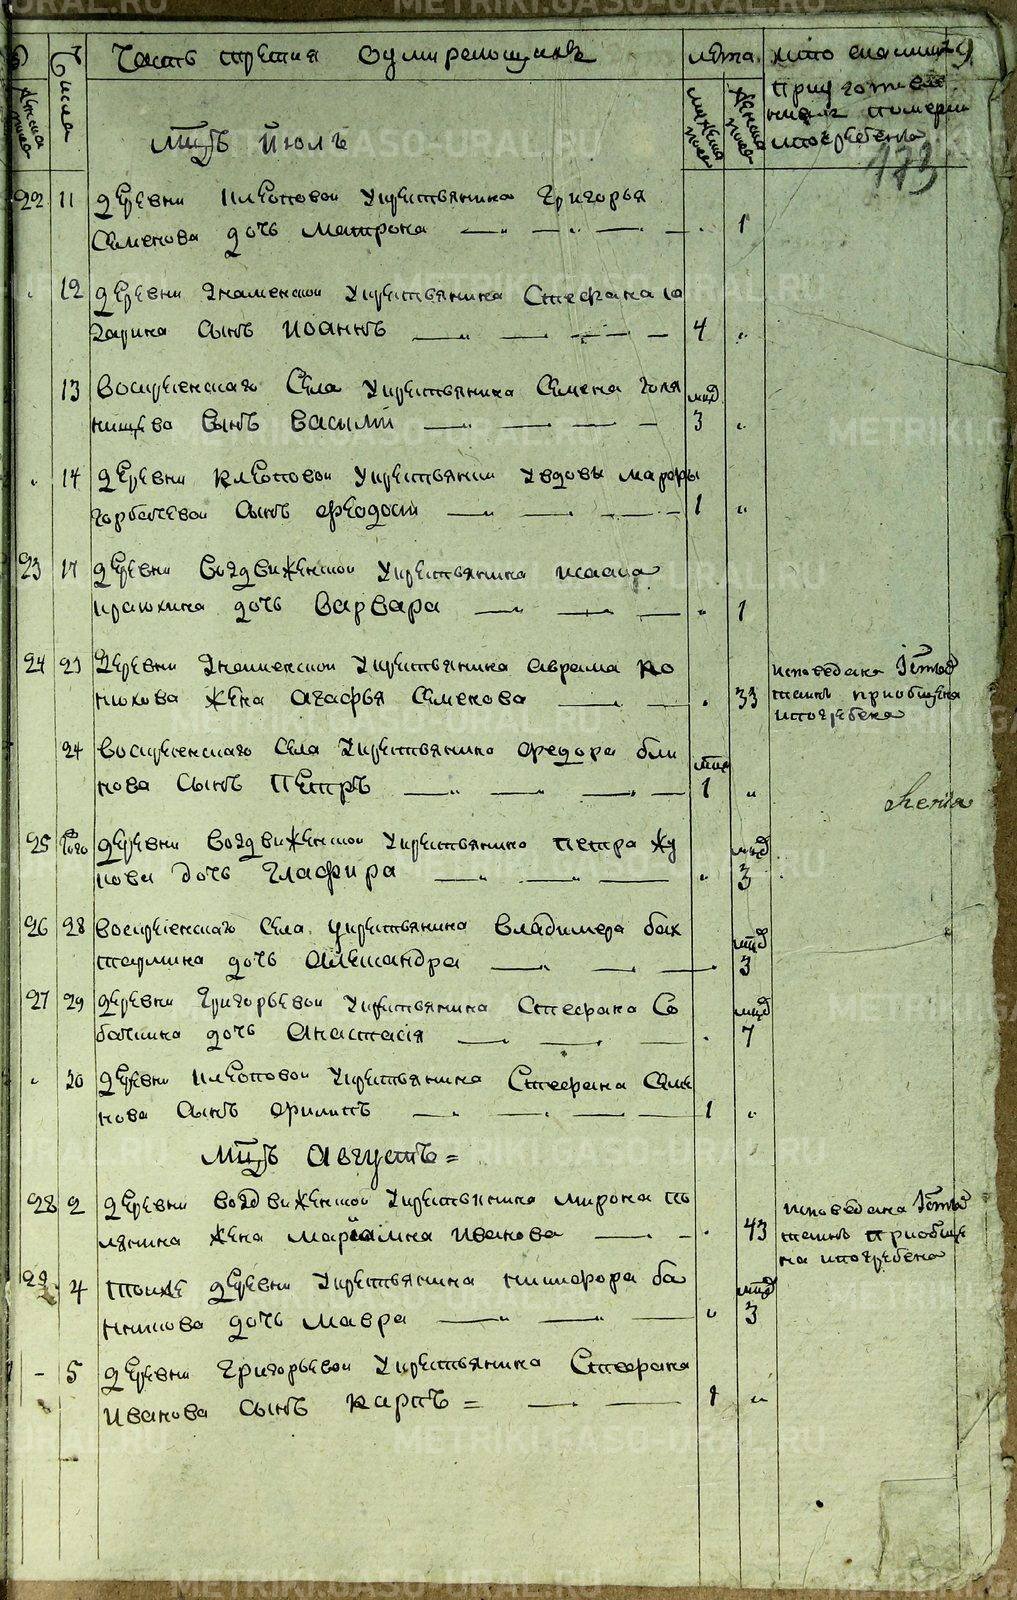 Числа
Часть третия о умирающихъ
лета
женска полу
мужеска полу
женска полу
погребены
173
Мцъ Июль
22 11 деревни Клеповой крестьянина Григорья
Семенова дочь Матрона 1
12 деревни Знаменской крестьянина Стефана
сынъ Иоаннъ 4
13 Воскресенскаго села крестьянина Семена Голя
нищева сынъ Василий мцд 3
14 деревни Клеповой крестьянки вдовы Марфы
Горбачевой сынъ Феодосий 1
23 17 деревни Воздвиженской крестьянина Исаака
дочь Варвара 1
24 23 деревни Знаменской крестьянина Аврама Ко
нюхова жена Агафья Семенова 33
исповедана
приобщена
и погребена
24 Воскресенскаго села крестьянина Федора Бли
нова сынъ Петръ 1
25 деревни Воздвиженской крестьянина Петра Жу
кова дочь Глафира мцд 3
26 28 Воскресенскаго села крестьянина Владимера Бах
дочь Александра мцд 3
27 29 деревни Григорьевой крестьянина Стефана Со
бачкина дочь Анастасія мцд 7
30 деревни Клеповой крестьянина Стефана Семе
нова сынъ Филипъ 1
Мцъ Августъ =
28 2 деревни Воздвиженской крестьянина Мирона По
лянина жена Маріамна Иванова 43
исповедана
приобще
на и погребена
29 4 тойже деревни крестьянина Никифора Ба
нникова дочь Мавра мцд 3
5 деревни Григорьевой крестьянина Стефана
Иванова сынъ Карпъ = 1
METRIKI.GASO-URAL.RU